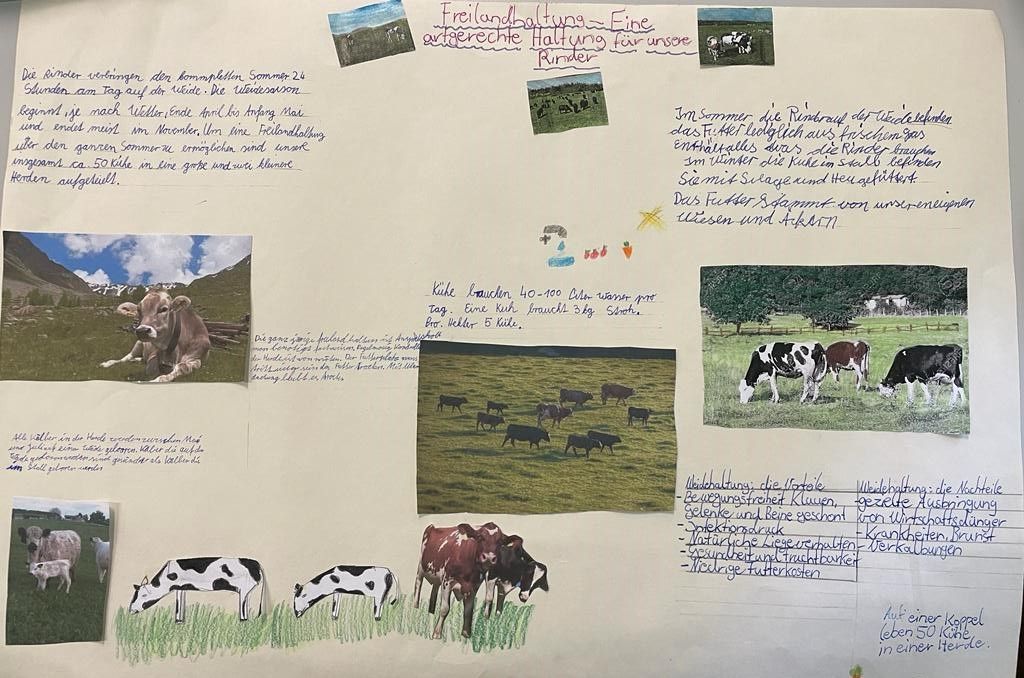 Freilandhaltung - Eine
artgerechte Haltung für unsere
Rinder
Die Rinder verbringen den kommpletten Sommer 24
Stunden am Tag auf der Weide. Die Weidesaison
beginnt, je nach Wetter, Ende April bis Anfang Mai
und endet meist im November. Um eine Freilandhaltung
über den ganzen Sommer zu ermöglichen sind unsere
insgesamt ca. 50 Kühe in eine große und zwei kleinere
Herden aufgeteilt.
Im Sommer die Rinder auf der Weide befinden
das Futter lediglich aus frischem Gras
Enthält alles was die Rinder brauchen
Im Winter die Kühe im Stall befinden
Sie mit Silage und Heu gefüttert.
Das Futter Stammt von unseren eignen
Wiesen und Äckern
Kühe brauchen 40-100 Liter wasser pro
Tag. Eine Kuh braucht 3 kg Stroh.
Pro. Hektar 5 Kühe.
Die ganz jährige freiland
der Herde ist von
Alle Kälber in der Herde werden zwischen Mai
und Juli auf einer Weide geboren. Kälber die auf der
sind gesünder als Kälber die
im Stall geboren werden
Weidehaltung: die Vorteile
- Bewegungsfreiheit Klauen,
Gelenke und Beine geschont
- Infektionsdruck
- Natürliche Liegeverhalten
- Gesundheit und Fruchtbarkeit
- Niedrige Futterkosten
Weidehaltung: die Nachteile
gezielte Ausbringung
von Wirtschaftsdünger
- Krankheiten, Brunst
- Verkalbungen
Auf einer Koppel
leben 50 Kühe
in einer Herde.